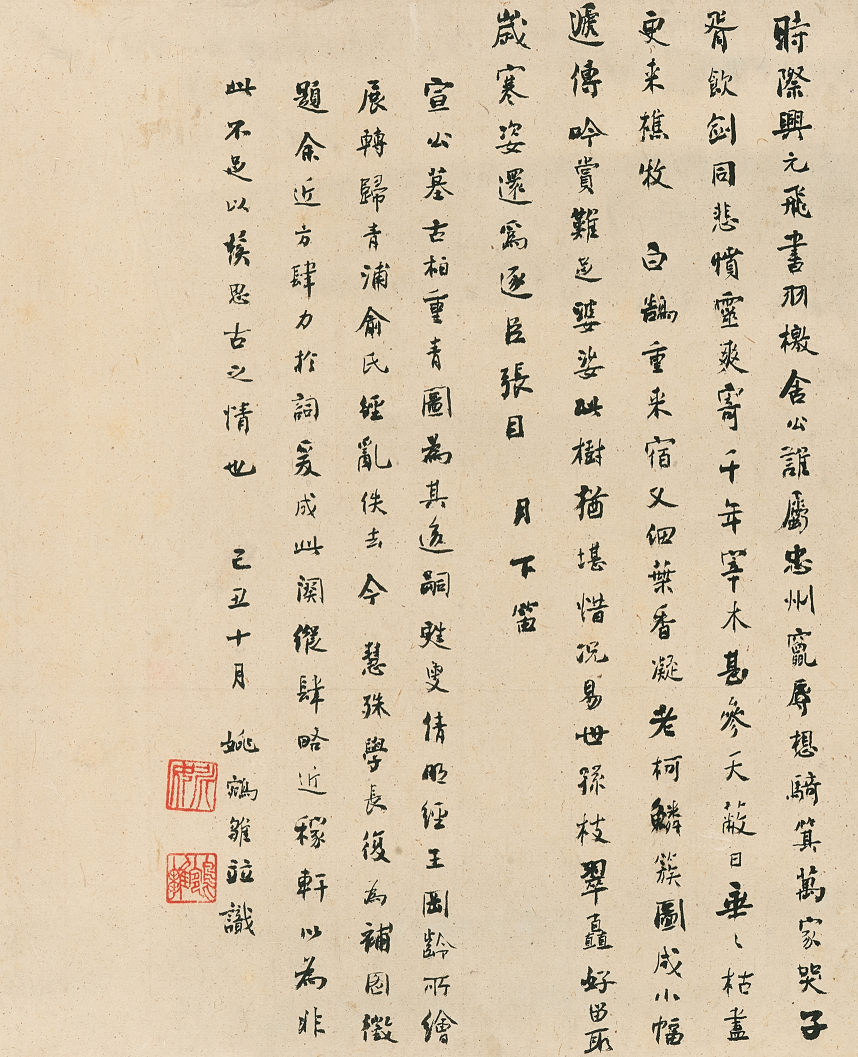 時際興元飛書羽檄舍公誰屬忠州竄辱想騎箕萬家哭子
胥飲劍同悲憤靈爽寄千年宰木甚參天蔽日垂〻枯盡
更來樵牧　白鵠重來宿又細葉香凝老柯鱗簇圖成小幅
遞傳吟賞難足婆娑此樹猶堪惜況易世孫枝翠矗好留取
歲寒姿還為逐臣張目　月下笛
宣公墓古柏重青圖為其遠嗣甦叟倩明經王岡齡所繪
展轉歸青浦俞氏經亂佚去今　慧殊學長復為補圖徵
題余近方肆力於詞爰成此闋縱肆略近稼軒以為非
此不足以發思古之情也　己丑十月　姚鵷雛並識